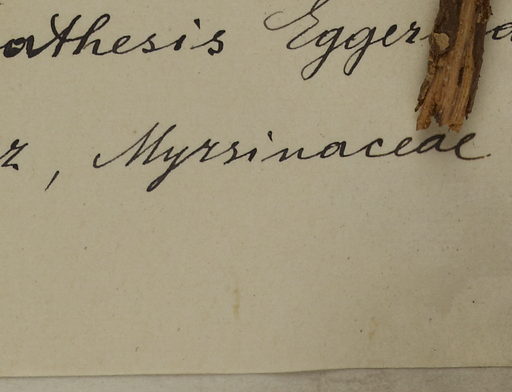 athesis Egger
r, Myrsinaceae